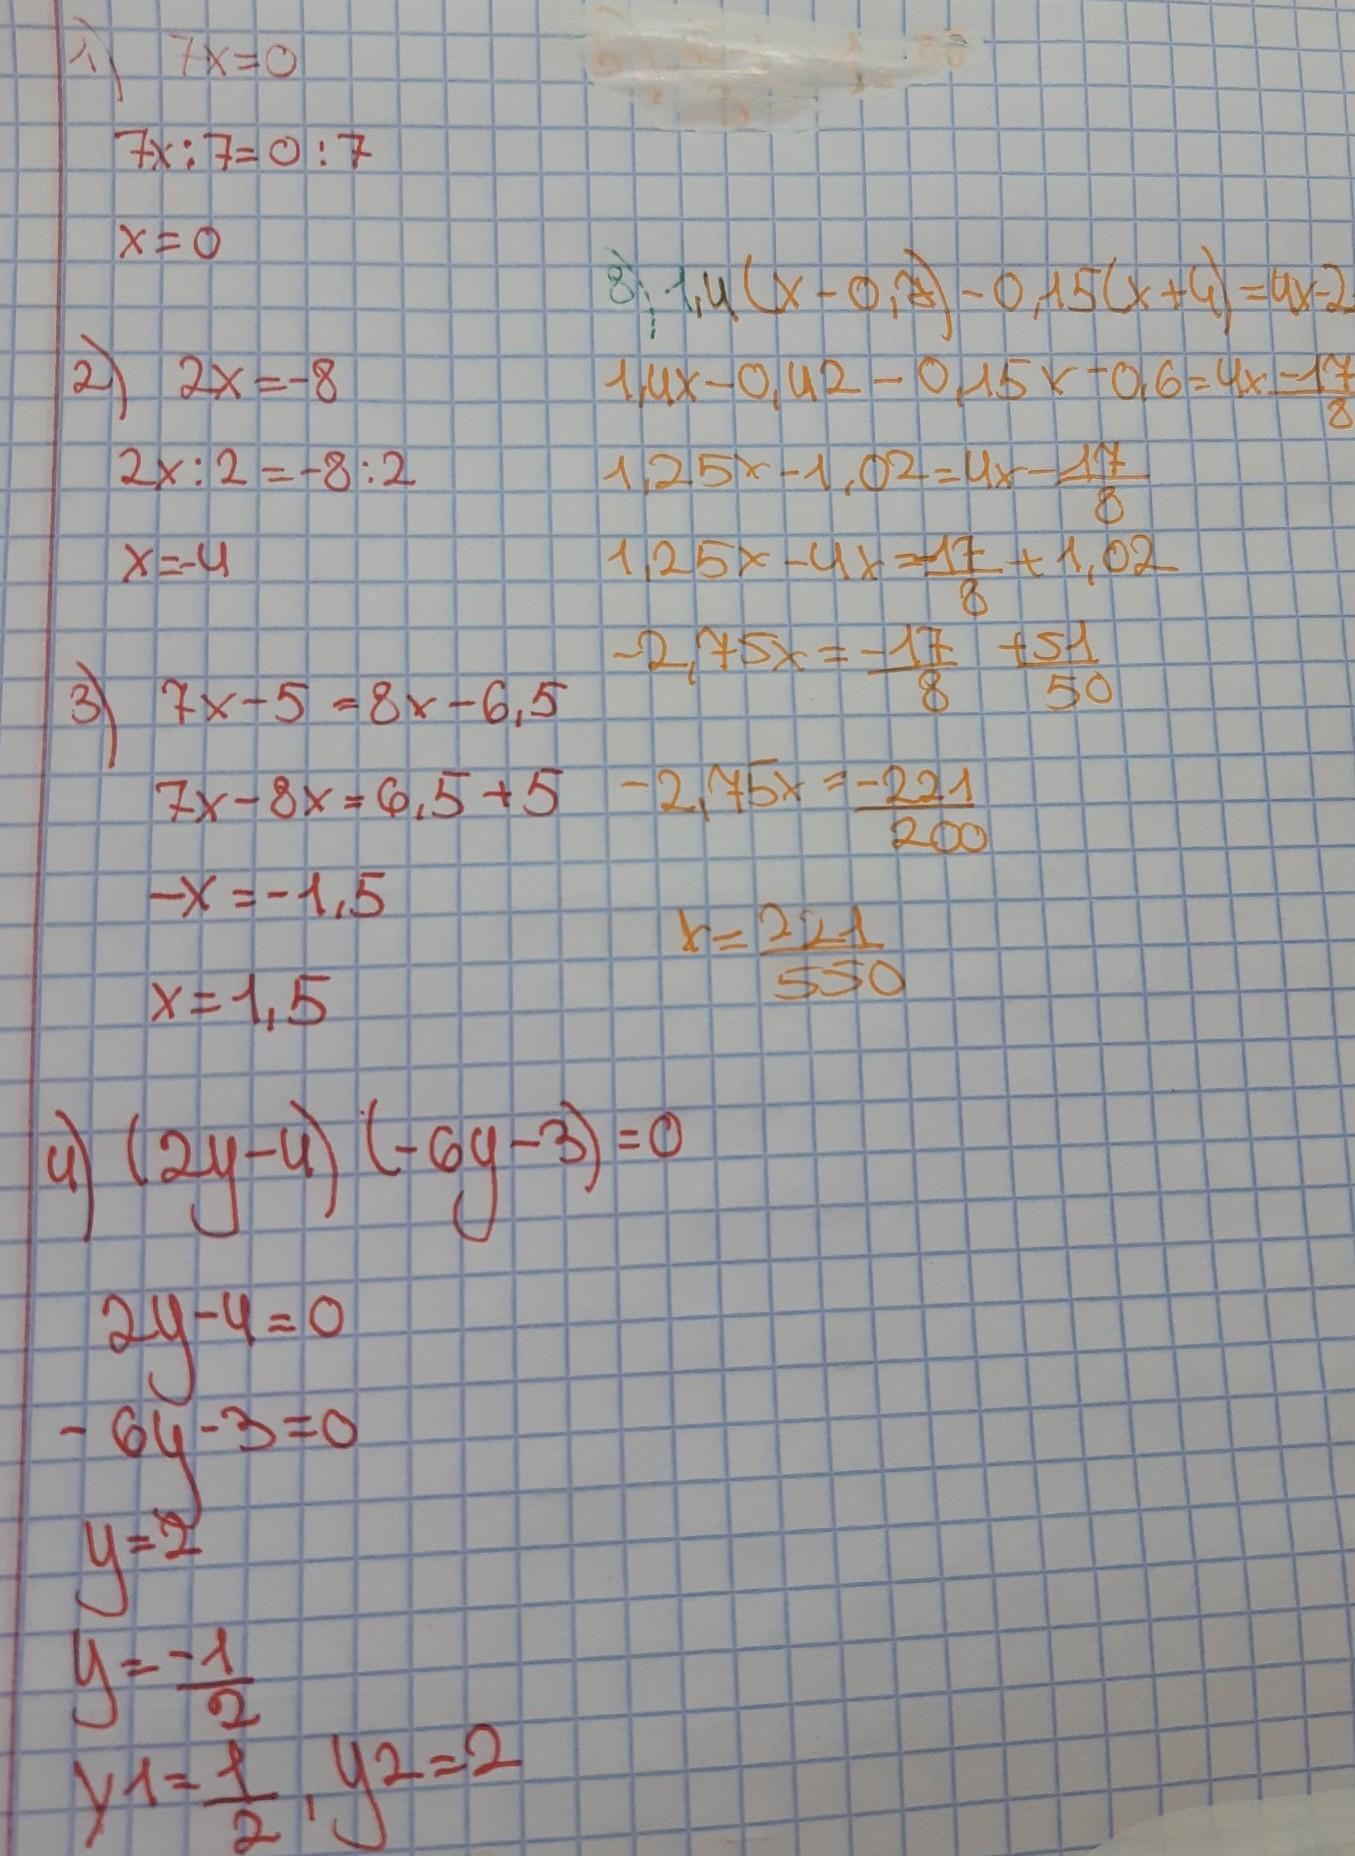 1) 7x=0
7x:7=0:7
x=0
2) 2x=-8
2x:2=-8:2
x=-4
3) 7x-5=8x-6,5
7x-8x=6,5+5
-x=-1,5
x=1,5
4) (2y-4)(-6y-3)=0
2y-4=0
-6y-3=0
y=2
y=-1/2
y1=1/2, y2=2
8) 1,4(x-0,3)-0,15(x+4)=4x-2
1,4x-0,42-0,15x-0,6=4x-17/8
1,25x-1,02=4x-17/8
1,25x-4x=-17/8+1,02
-2,75x=-17/8 +51/50
-2,75x=-221/200
x=221/550